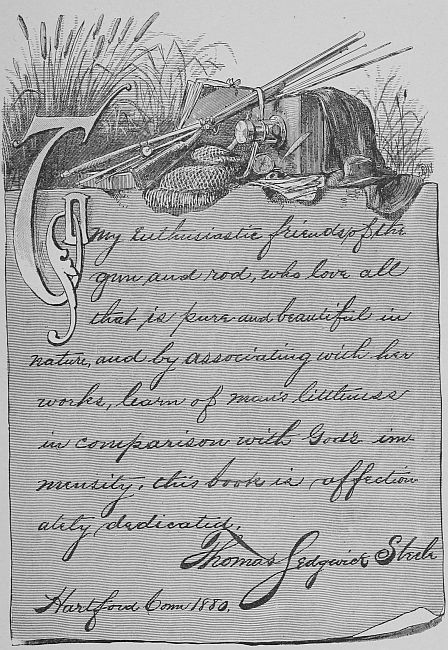 To my Enthusiastic friends of the
gun and rod, who love all
that is pure and beautiful in
nature, and by associating with her
works, learn of man's littleness
in comparison with God's im-
mensity, this book is affection-
ately dedicated.
Thomas Sedgwick Steele
Hartford Conn 1880.